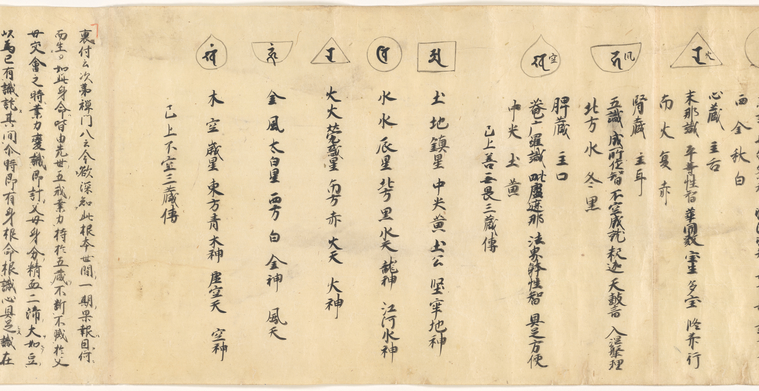 西 金 秋 白
心藏 主舌
火
末那識 平等性智 華開敷 宝生 多宝 行
南 火 夏 赤
腎藏 主耳
風
五識 成所作智 不空成就 釈迦 天皷音 入涅槃理
北方 水 冬 黒
脾藏 主口
空
菴广羅識 毗盧遮那 法界躰性智 具足方便
中央 土 黄
已上善无畏三蔵傳
土 地 鎮星 中央 黄 土公 堅牢地神
水 水 辰星 北方 黒 水天 龍神 江河水神
火 火 熒惑星 南方 赤 火天 火神
金 風 太白星 西方 白 金神 風天
木 空 歳星 東方 青 木神 虚空天 空神
已上不空三蔵傳
裏付云次第禅門八云今欲深知此根本世間一期果報因何
而生。如此身命皆由先世五戒業力持於五藏不断不滅於父
母交會之時業力変識即計父母身分精血二渧大如豆
以為已有識託其間尓時即有身根命根識心具足識在